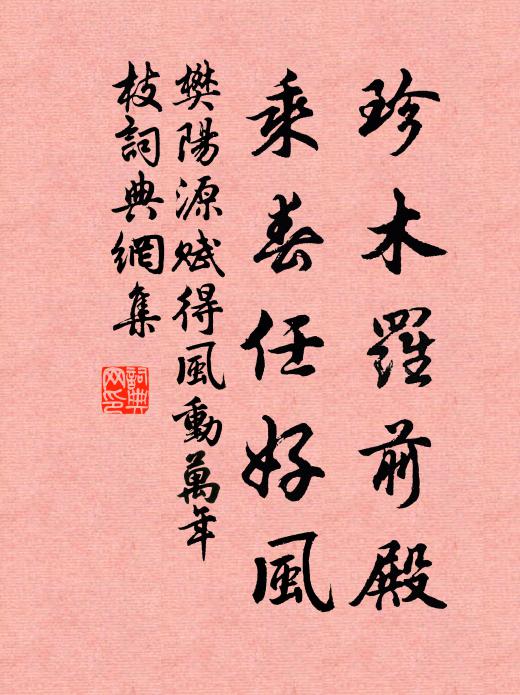 珍木羅前殿
乘春任好風
樊陽源賦得風動萬年
枝詞典網集
詞典
网印